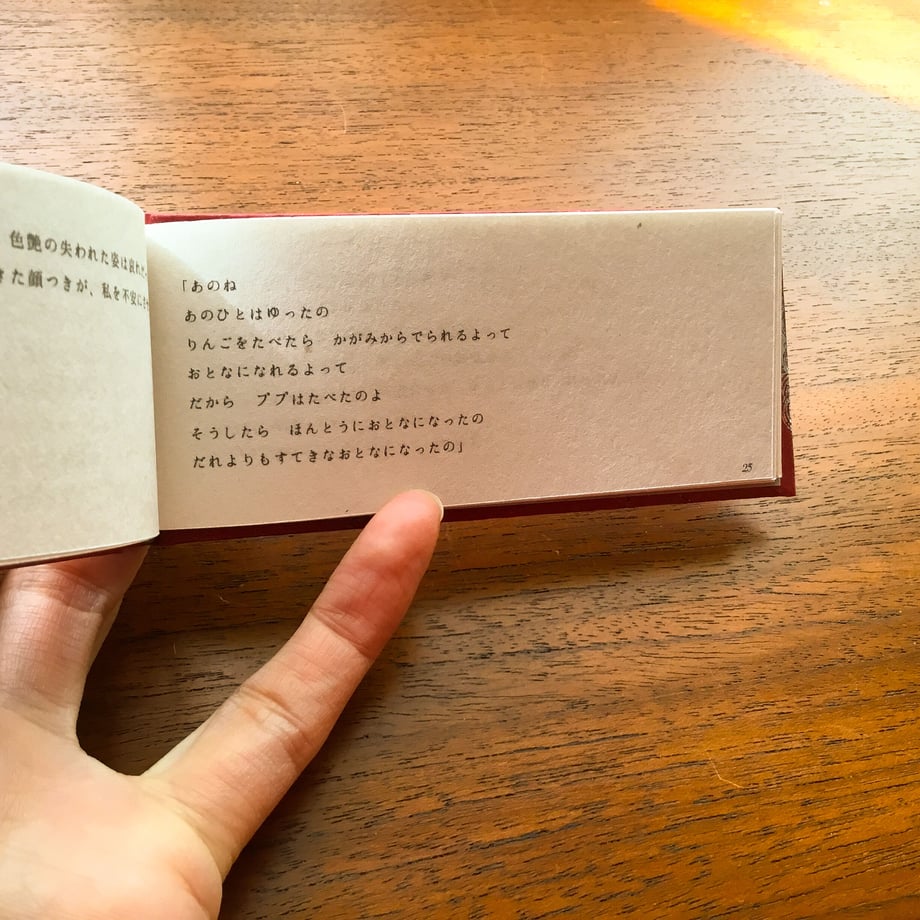 色艶の失われた姿は哀れ
た顔つきが、私を不安に
「あのね
あのひとはゆったの
りんごをたべたら　かがみからでられるよって
おとなになれるよって
だから　ププはたべたのよ
そうしたら　ほんとうにおとなになったの
だれよりもすてきなおとなになったの」
25